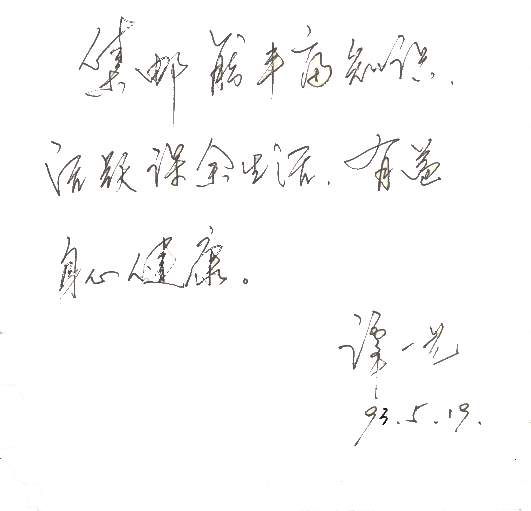 集邮能丰富知识、
活跃课余生活、有益
身心健康。
谭一兄
93.5.19.